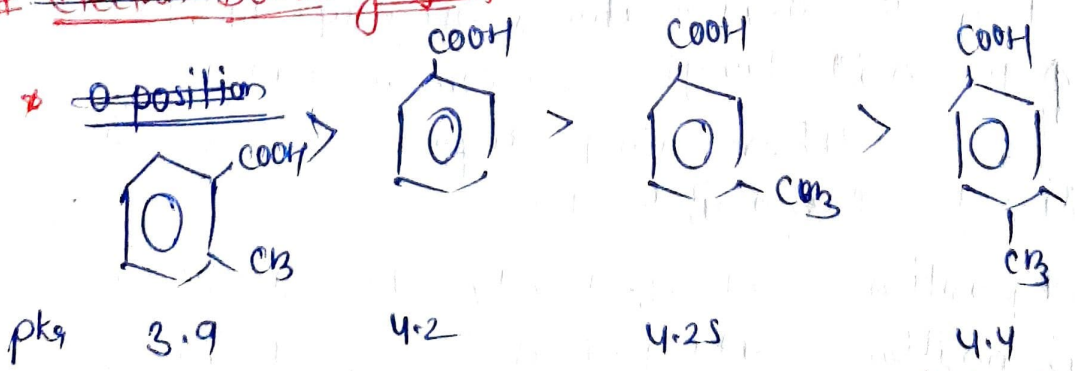 * o-position
COOH > COOH > COOH > COOH
CH3 CH3 CH3
pka 3.9 4.2 4.25 4.4